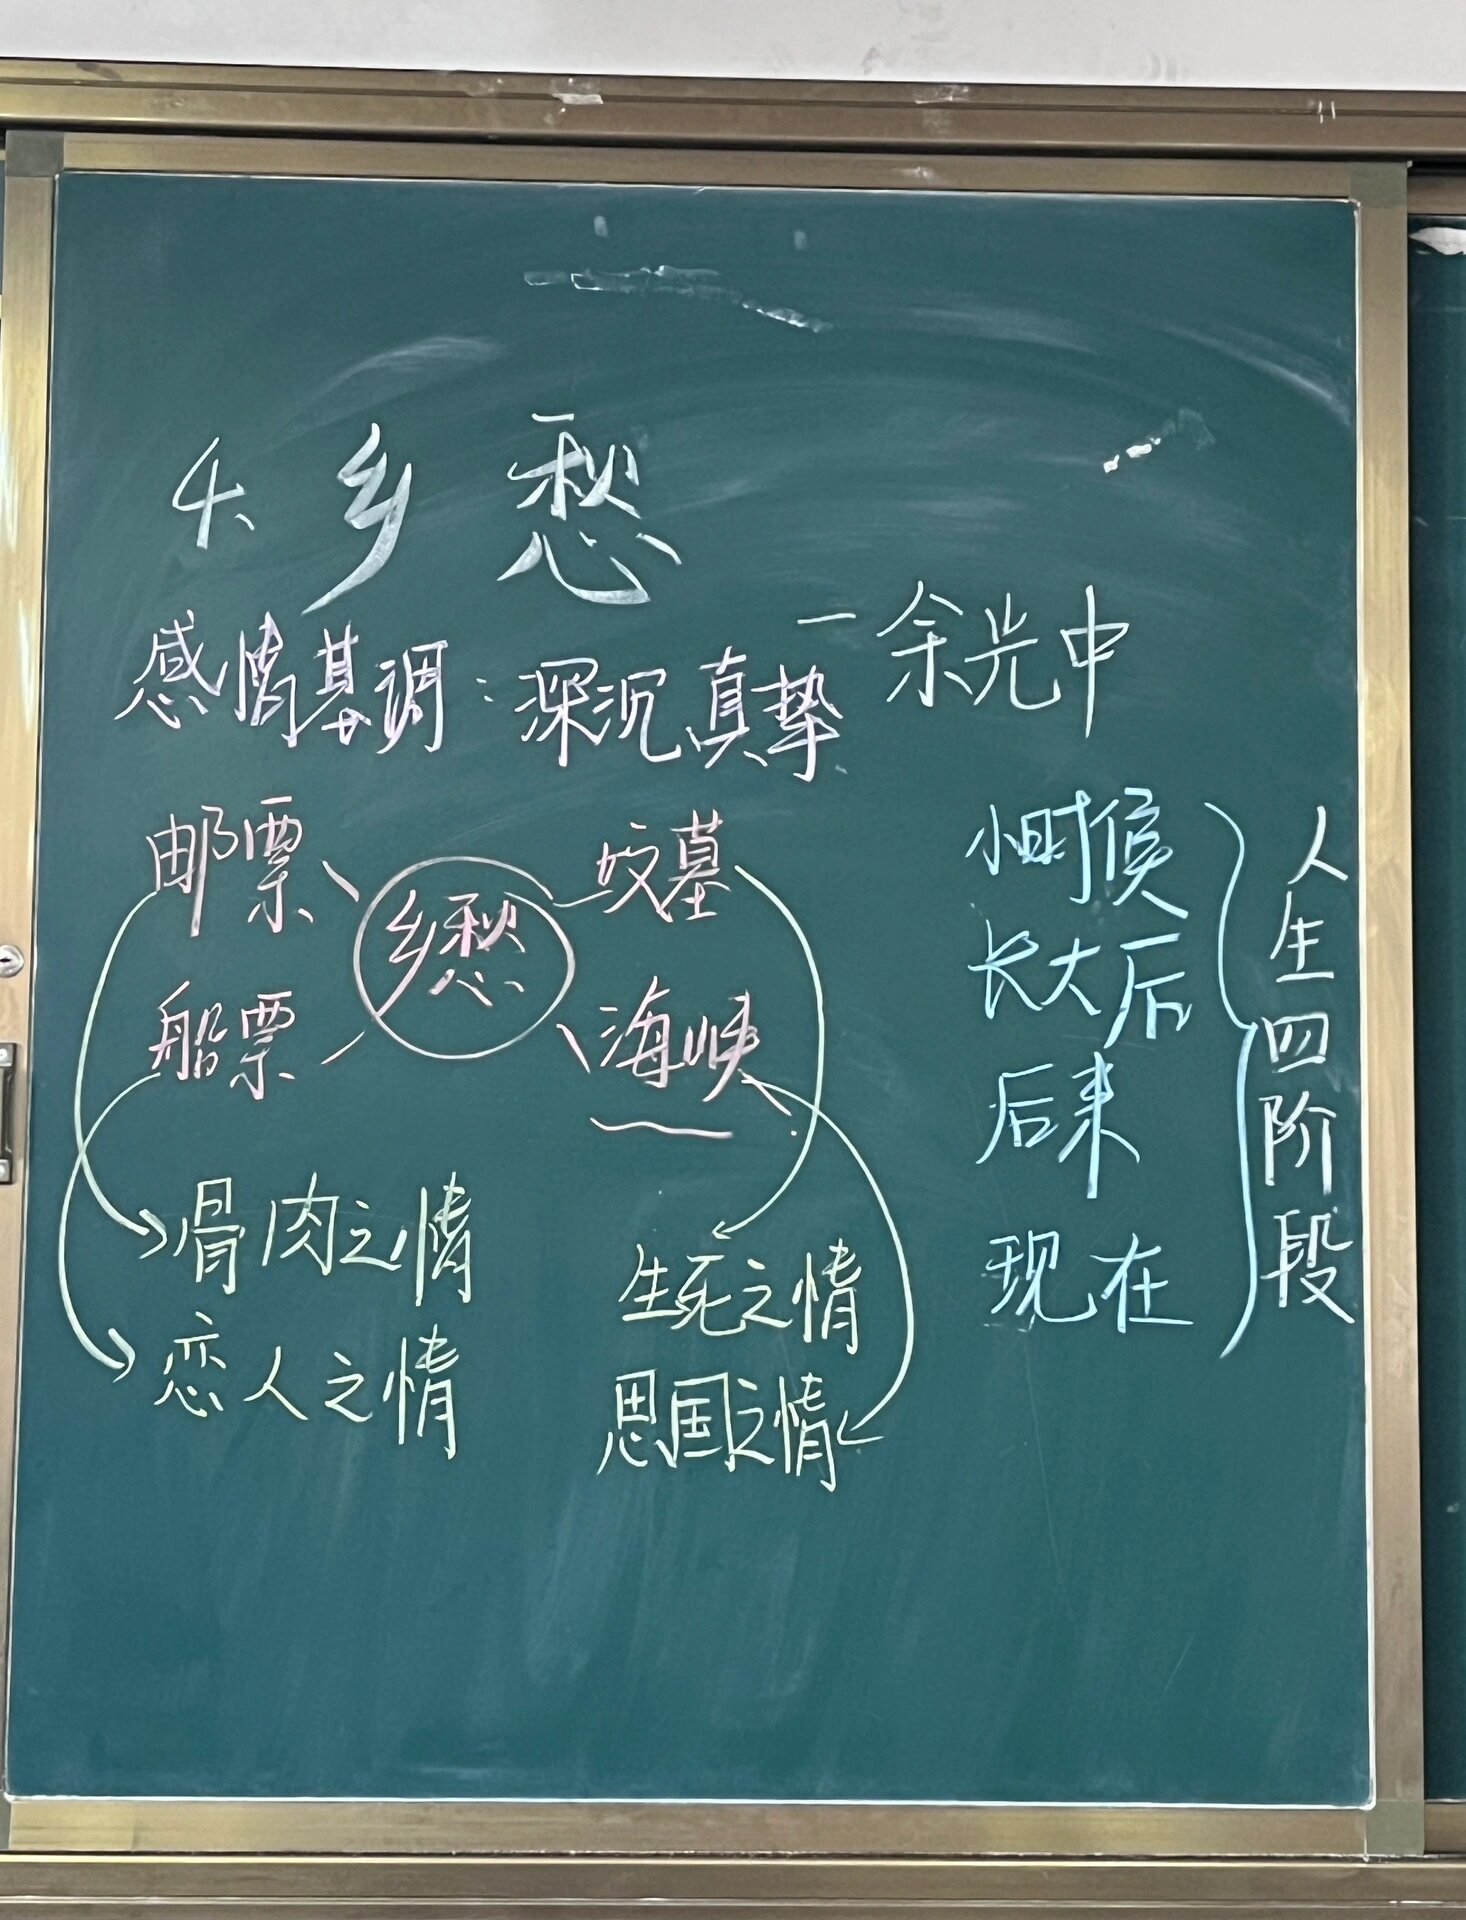 4、乡愁
—余光中
感情基调:深沉真挚
邮票
坟墓
乡愁
船票
海峡
骨肉之情
恋人之情
生死之情
思国之情
小时候
长大后
后来
现在
人生四阶段